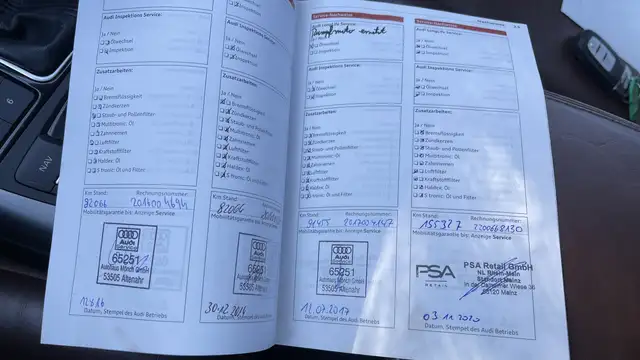 Audi Inspektions Service:
Ja / Nein
Ölwechsel
Inspektion
Zusatzarbeiten:
Ja / Nein
Bremsflüssigkeit
Zündkerzen
Staub- und Pollenfilter
Multitronic: Öl
Zahnriemen
Luftfilter
Kraftstofffilter
Haldex: Öl
S tronic: Öl und Filter
Km Stand: Rechnungsnummer:
82066
Mobilitätsgarantie bis: Anzeige Service
Audi
Service
65251
Autohaus Mönch GmbH
53505 Altenahr
Datum, Stempel des Audi Betriebs
Ölwechsel
Inspektion
Zusatzarbeiten:
Ja / Nein
Bremsflüssigkeit
Zündkerzen
Staub- und Pollenfilter
Multitronic: Öl
Zahnriemen
Luftfilter
Kraftstofffilter
Haldex: Öl
S tronic: Öl und Filter
Km Stand:
82066
30.12.2016
Datum, Stempel des Audi Betriebs
Service-Nachweise
Audi LongLife Service:
Ja / Nein
Ölwechsel
Inspektion
Audi Inspektions Service:
Ja / Nein
Ölwechsel
Inspektion
Zusatzarbeiten:
Ja / Nein
Bremsflüssigkeit
Zündkerzen
Staub- und Pollenfilter
Multitronic: Öl
Zahnriemen
Luftfilter
Kraftstofffilter
Haldex: Öl
S tronic: Öl und Filter
Km Stand: Rechnungsnummer:
Mobilitätsgarantie bis: Anzeige Service
Audi
Service
65251
Autohaus Mönch GmbH
53505 Altenahr
12.07.2017
Datum, Stempel des Audi Betriebs
Audi LongLife Service:
Ja / Nein
Ölwechsel
Inspektion
Audi Inspektions Service:
Ja / Nein
Ölwechsel
Inspektion
Zusatzarbeiten:
Ja / Nein
Bremsflüssigkeit
Zündkerzen
Staub- und Pollenfilter
Multitronic: Öl
Zahnriemen
Luftfilter
Kraftstofffilter
Haldex, Öl
S tronic: Öl und Filter
Km Stand: Rechnungsnummer:
155327 2200668130
Mobilitätsgarantie bis: Anzeige Service
PSA
RETAIL
PSA Retail GmbH
NL Rhein-Main
Standort Mainz
In der Dalheimer Wiese
55120 Mainz
03 11 2020
Datum, Stempel des Audi Betriebs
6
NAV